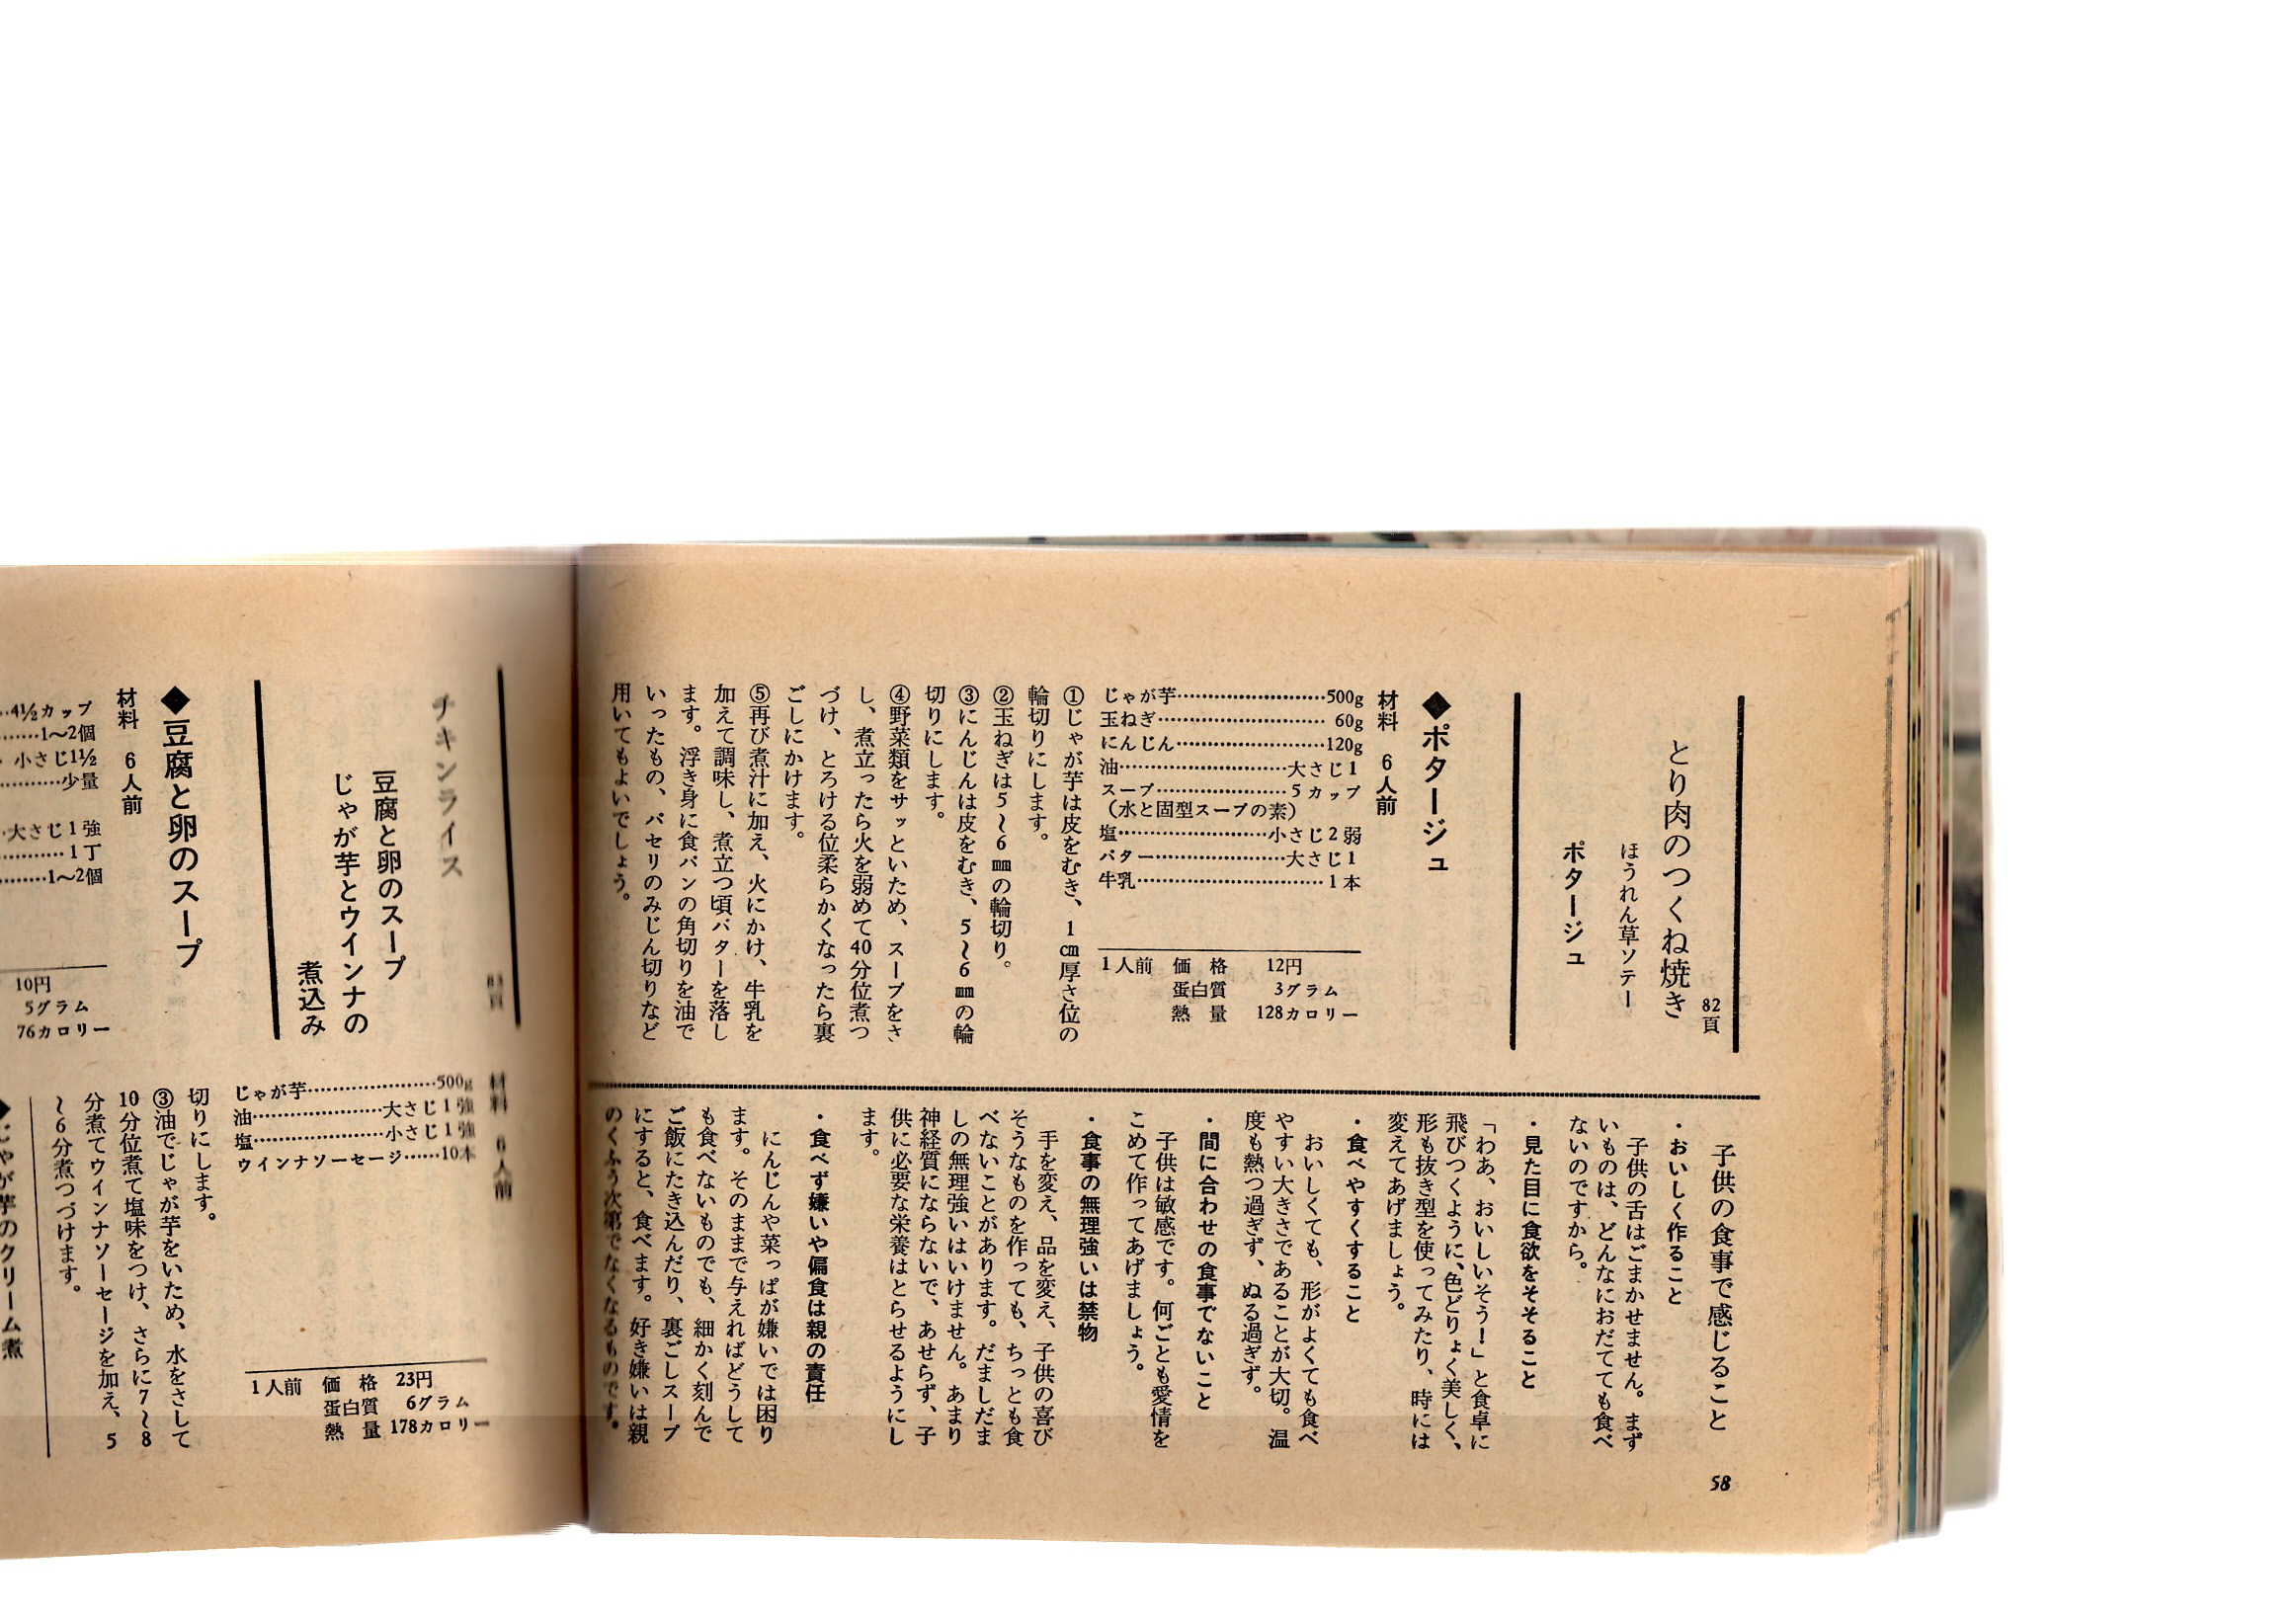 とり肉のつくね焼き
82頁
ほうれん草ソテー
ポタージュ
◆ポタージュ
材料　6人前
じゃが芋……………………500g
玉ねぎ……………………… 60g
にんじん……………………120g
油………………………大さじ1
スープ…………………5カップ
（水と固型スープの素）
塩……………………小さじ2弱
バター…………………大さじ1
牛乳…………………………1本
1人前　価　格　12円
蛋白質　3グラム
熱　量　128カロリー
①じゃが芋は皮をむき、1cm厚さ位の
輪切りにします。
②玉ねぎは5〜6mmの輪切り。
③にんじんは皮をむき、5〜6mmの輪
切りにします。
④野菜類をサッといため、スープをさ
し、煮立ったら火を弱めて40分位煮つ
づけ、とろける位柔らかくなったら裏
ごしにかけます。
⑤再び煮汁に加え、火にかけ、牛乳を
加えて調味し、煮立つ頃バターを落し
ます。浮き身に食パンの角切りを油で
いったもの、パセリのみじん切りなど
用いてもよいでしょう。
子供の食事で感じること
・おいしく作ること
子供の舌はごまかせません。まず
いものは、どんなにおだてても食べ
ないのですから。
・見た目に食欲をそそること
「わあ、おいしいそう！」と食卓に
飛びつくように、色どりよく美しく、
形も抜き型を使ってみたり、時には
変えてあげましょう。
・食べやすくすること
おいしくても、形がよくても食べ
やすい大きさであることが大切。温
度も熱つ過ぎず、ぬる過ぎず。
・間に合わせの食事でないこと
子供は敏感です。何ごとも愛情を
こめて作ってあげましょう。
・食事の無理強いは禁物
手を変え、品を変え、子供の喜び
そうなものを作っても、ちっとも食
べないことがあります。だましだま
しの無理強いはいけません。あまり
神経質にならないで、あせらず、子
供に必要な栄養はとらせるようにし
ます。
・食べず嫌いや偏食は親の責任
にんじんや菜っぱが嫌いでは困り
ます。そのままで与えればどうして
も食べないものでも、細かく刻んで
ご飯にたき込んだり、裏ごしスープ
にすると、食べます。好き嫌いは親
のくふう次第でなくなるものです。
58
チキンライス
豆腐と卵のスープ
じゃが芋とウインナの
煮込み
◆豆腐と卵のスープ
材料　6人前
…4½カップ
………1〜2個
小さじ1½
…………少量
…大さじ1強
…………1丁
………1〜2個
10円
5グラム
76カロリー
材料　6人前
じゃが芋…………………500g
油…………………大さじ1強
塩…………………小さじ1強
ウインナソーセージ……10本
1人前　価　格　23円
蛋白質　6グラム
熱　量　178カロリー
切りにします。
③油でじゃが芋をいため、水をさして
10分位煮て塩味をつけ、さらに7〜8
分煮てウインナソーセージを加え、5
〜6分煮つづけます。
じゃが芋のクリーム煮